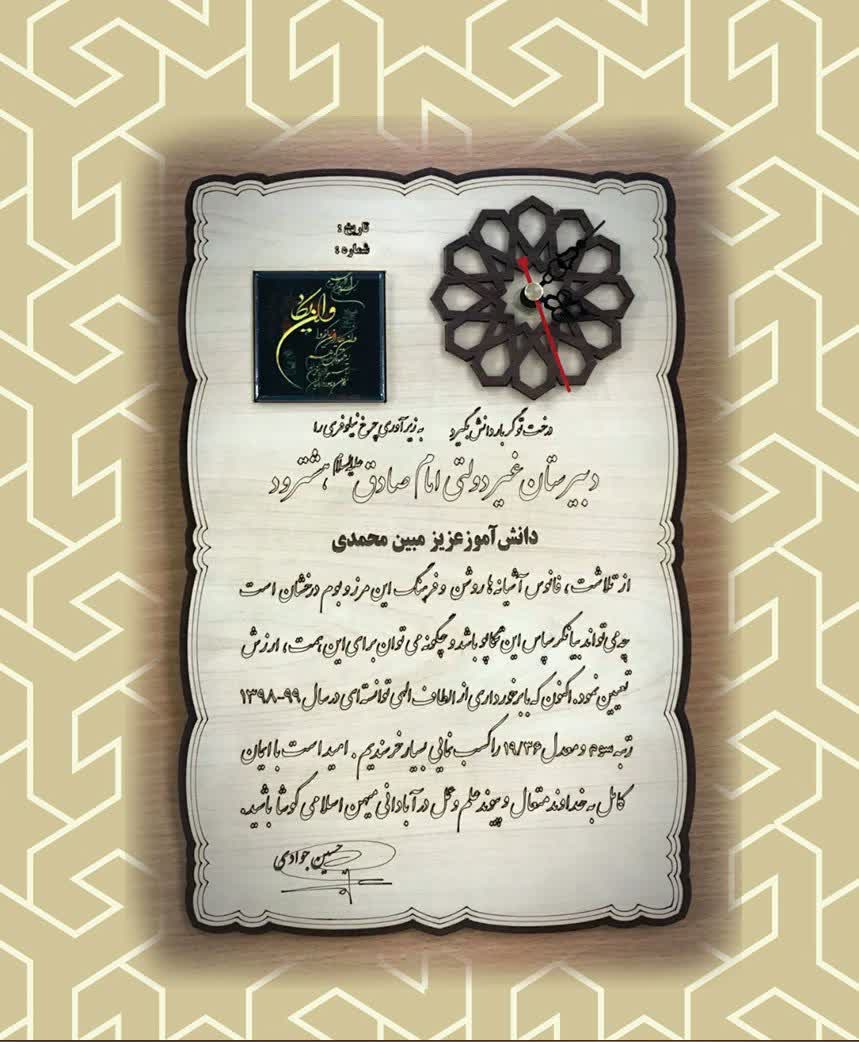 تاریخ :
شماره :
وان یکاد
درخت تو گر بار دانش بگیرد    به زیر آوری چرخ نیلوفری را
دبیرستان غیر دولتی امام صادق علیه السلام هشترود
دانش آموز عزیز مبین محمدی
از تلاشت، فانوس آشیانه ها روشن و فرهنگ این مرز و بوم درخشان است
چه می تواند بیانگر سپاس این تکاپو باشد و چگونه می توان برای این همت، ارزش
تعیین نمود، اکنون که با برخورداری از الطاف الهی توانسته ای در سال ۹۹-۱۳۹۸
رتبه سوم و معدل ۱۹/۳۶ را کسب نمایی بسیار خرسندیم . امید است با ایمان
کامل به خداوند متعال و پیوند علم و عمل در آبادانی میهن اسلامی کوشا باشید.
حسین جوادی